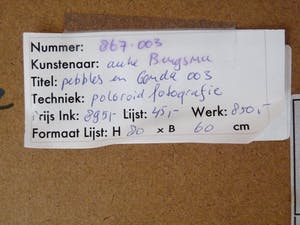 Nummer: 867-003
Kunstenaar: auke Bergsma
Titel: pebbles en Gerda 003
Techniek: poloroid fotografie
Prijs Ink: 895,- Lijst: 45,- Werk: 850,-
Formaat Lijst: H 80 x B 60 cm